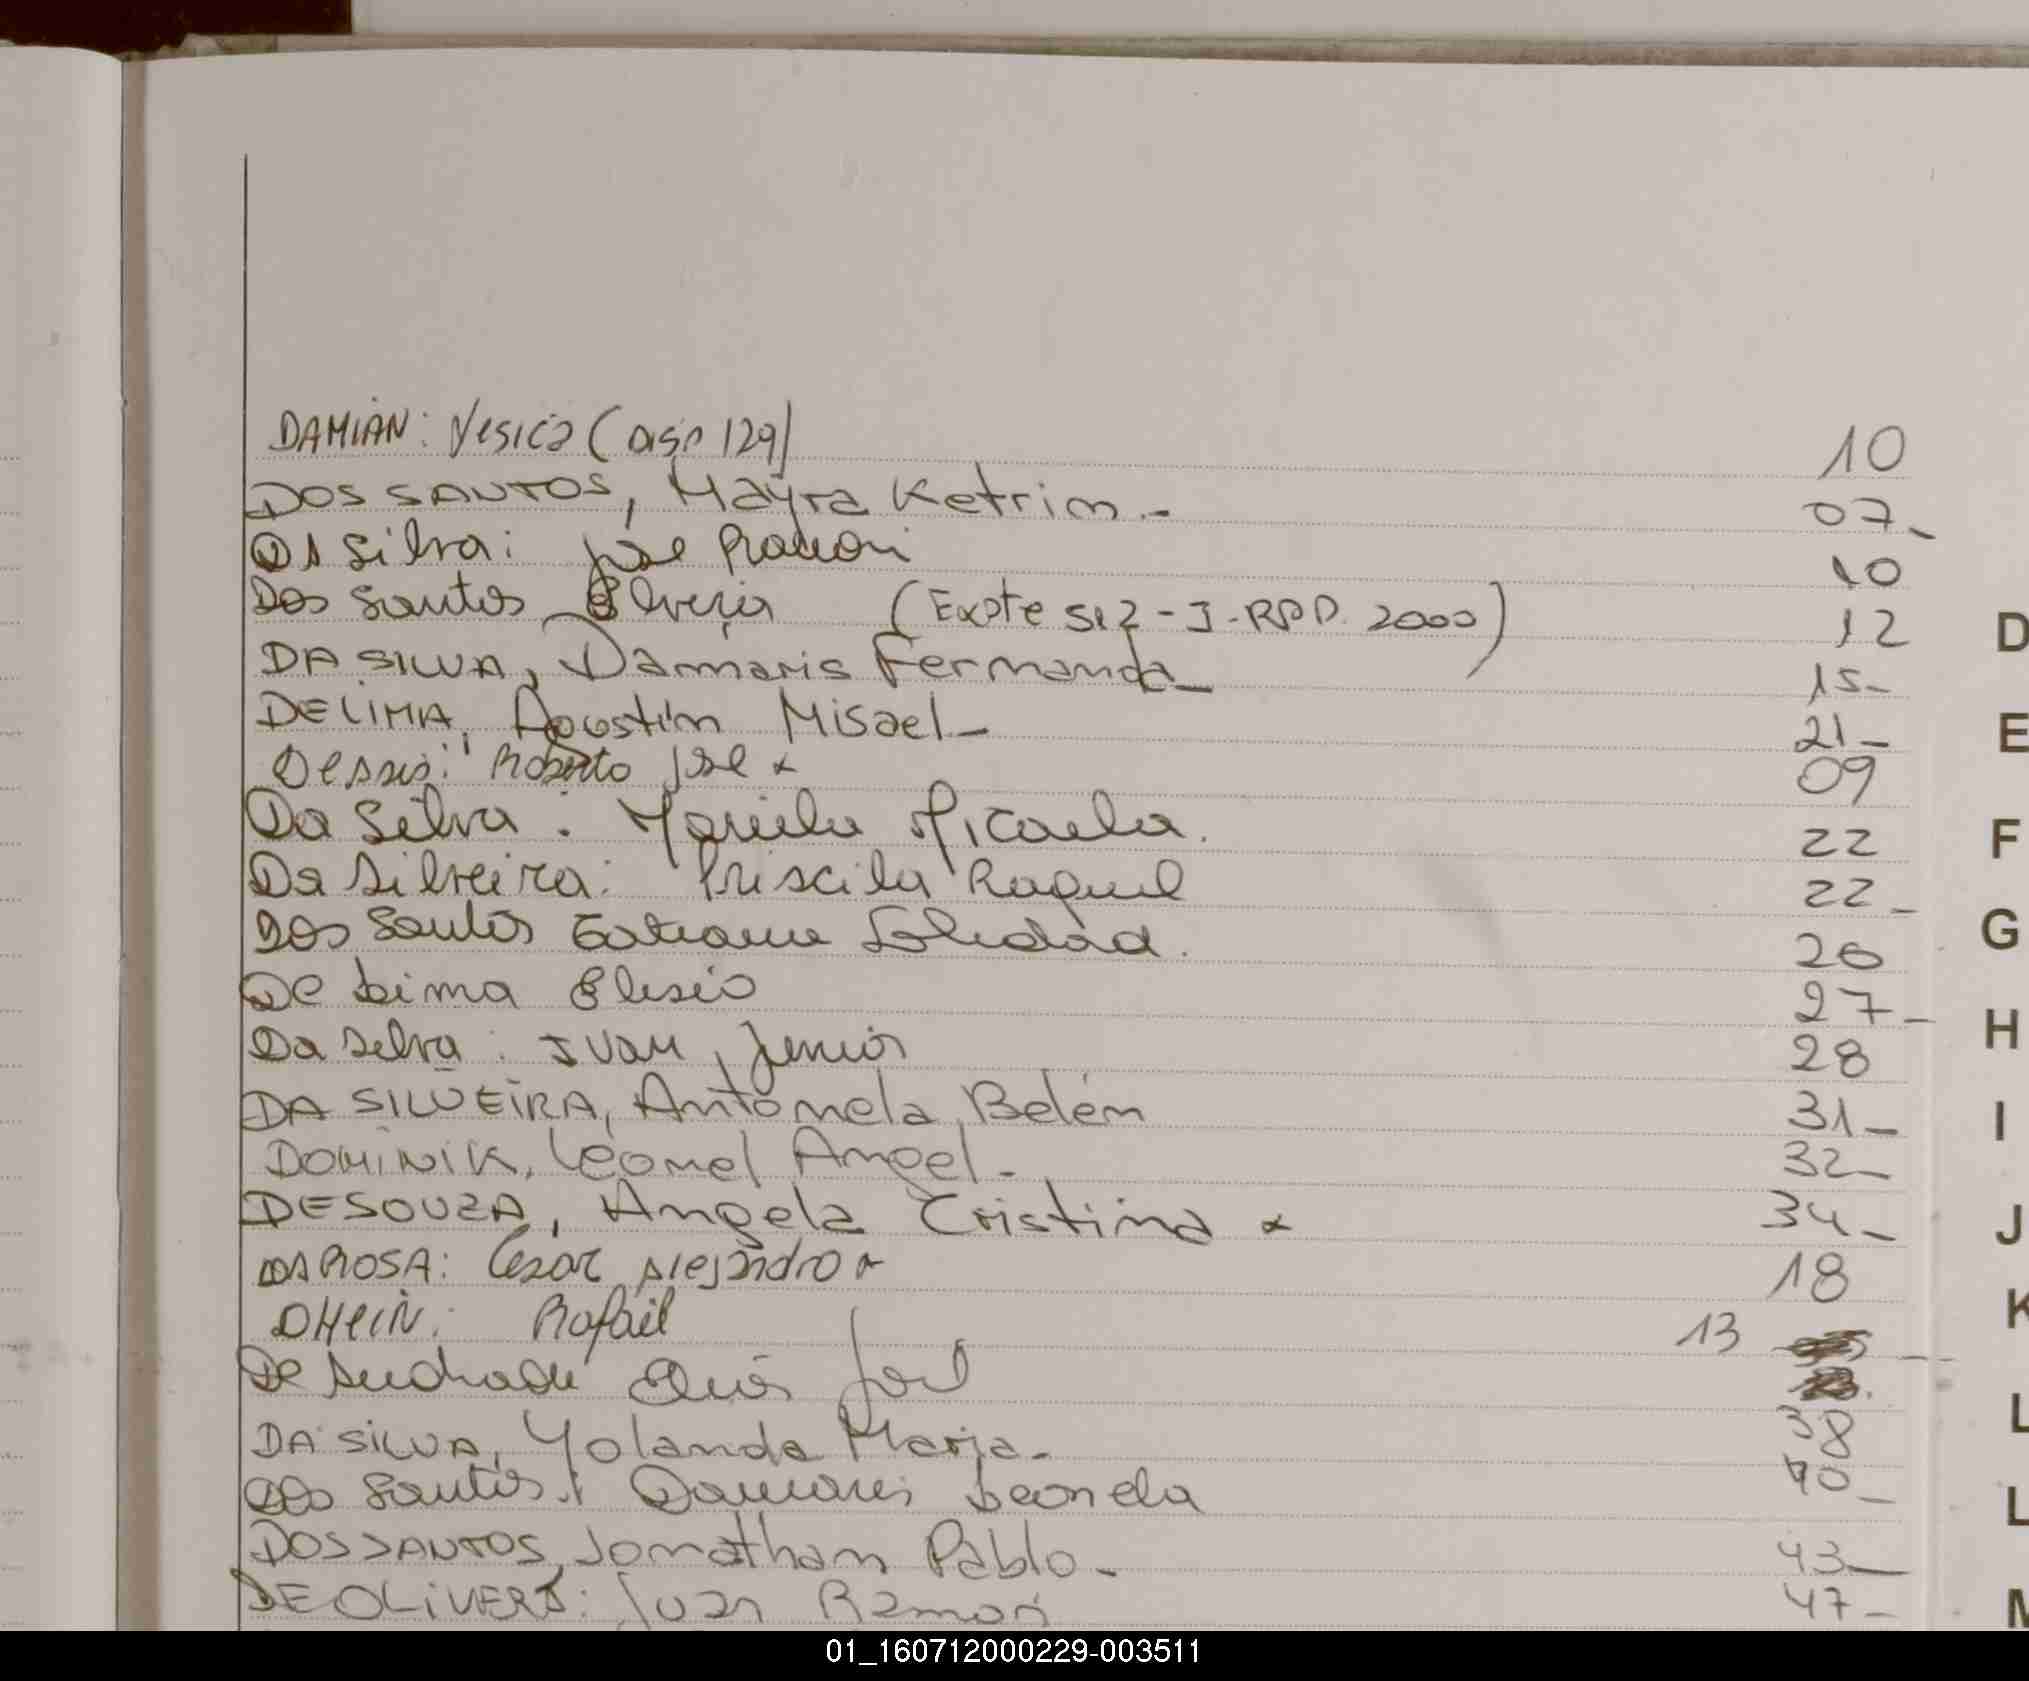 DAMIAN: Yesica (asp 129) 10
DOS SANTOS, Mayra Ketrim.- 07-
DA Silva: Jose Ramon 10
Dos Santos Elveija (Expte 512-J-RPD. 2000) 12
D
DA SILVA, Damaris Fernanda- 15-
DELIMA, Agustin Misael- 21-
E
Roberto Jose x 09
Da Silva: Mariela Micaela. 22
F
Da Silveira: Priscila Raquel 22-
Dos Santos Soledad. 26
G
De Lima Elisio 27-
H
Da Silva: Ivan, Junior 28
DA SILVEIRA, Antonela Belén 31-
I
DOMINIK, Leonel Angel- 32-
DESOUZA, Angela Cristina x 34-
J
DA ROSA: Cesar Alejandro 18
DHEIN: Rafael 13
K
De Andrade Jose
L
DA SILVA, Yolanda Maria- 38
Dos Santos: Damaris Leonela 40-
L
DOS SANTOS, Jonathan Pablo- 43-
DE OLIVERA: Juan Ramon 47-
M
01_160712000229-003511